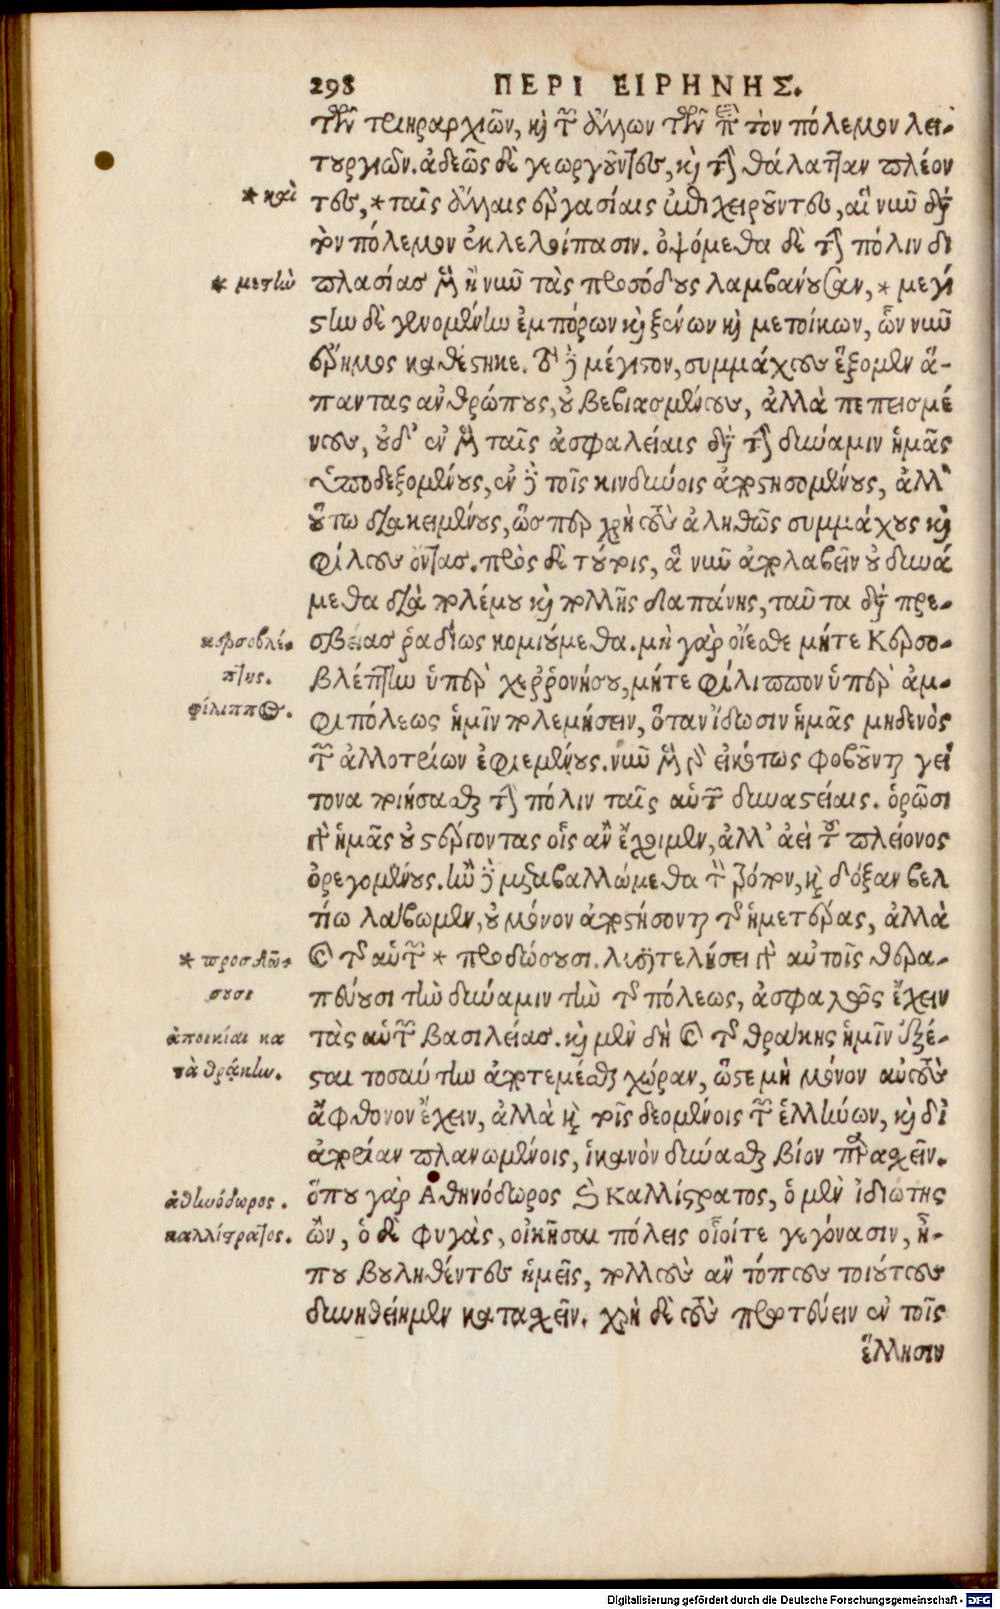 298 ΠΕΡΙ ΕΙΡΗΝΗΣ.
τῶν τριηραρχιῶν, καὶ τῶν ἄλλων τῶν περὶ τὸν πόλεμον λει-
τουργιῶν. ἀδεῶς δὲ γεωργοῦντες, καὶ τὴν θάλατταν πλέον
* καὶ
τες, * ταῖς ἄλλαις ἐργασίαις ἐπιχειροῦντες, αἳ νῦν διὰ
τὸν πόλεμον ἐκλελοίπασιν. ὀψόμεθα δὲ τὴν πόλιν δι
* μεστὴν
πλασίας μὲν ἢ νῦν τὰς προσόδους λαμβάνουσαν, * μεγί
στην δὲ γενομένην ἐμπόρων καὶ ξένων καὶ μετοίκων, ὧν νῦν
ἔρημος καθέστηκε. τὸ δὲ μέγιστον, συμμάχους ἕξομεν ἅ-
παντας ἀνθρώπους, οὐ βεβιασμένους, ἀλλὰ πεπεισμέ
νους, οὐδ' ἐν μὲν ταῖς ἀσφαλείαις διὰ τὴν δύναμιν ἡμᾶς
ὑποδεξομένους, ἐν δὲ τοῖς κινδύνοις ἀποστησομένους, ἀλλ'
οὕτω διακειμένους, ὥσπερ χρὴ τοὺς ἀληθῶς συμμάχους καὶ
φίλους ὄντας. πρὸς δὲ τούτοις, ἃ νῦν ἀπολαβεῖν οὐ δυνά
μεθα διὰ πολέμου καὶ πολλῆς δαπάνης, ταῦτα διὰ πρε-
κερσοβλέ-
πτης.
σβείας ῥαδίως κομιούμεθα. μὴ γὰρ οἴεσθε μήτε Κερσο-
βλέπτην ὑπὲρ χεῤῥονήσου, μήτε φίλιππον ὑπὲρ ἀμ-
φίλιππος.
φιπόλεως ἡμῖν πολεμήσειν, ὅταν ἴδωσιν ἡμᾶς μηδενὸς
τῶν ἀλλοτρίων ἐφιεμένους. νῦν μὲν γὰρ εἰκότως φοβοῦνται γεί
τονα ποιήσασθαι τὴν πόλιν ταῖς αὑτῶν δυναστείαις. ὁρῶσι
γὰρ ἡμᾶς οὐ στέργοντας οἷς ἂν ἔχοιμεν, ἀλλ' ἀεὶ τοῦ πλείονος
ὀρεγομένους. ἢν δὲ μεταβαλλώμεθα τὸν τρόπον, καὶ δόξαν βελ
τίω λάβωμεν, οὐ μόνον ἀποστήσονται τῆς ἡμετέρας, ἀλλὰ
* προσδώ-
σουσι
καὶ τῆς αὑτῶν * προδώσουσι. λυσιτελήσει γὰρ αὐτοῖς θερα-
πεύουσι τὴν δύναμιν τὴν τῆς πόλεως, ἀσφαλῶς ἔχειν
ἀποικίαι κα
τὰ θρᾴκην.
τὰς αὑτῶν βασιλείας. καὶ μὲν δὴ καὶ τῆς θρᾴκης ἡμῖν ἐξέ-
σται τοσαύτην ἀποτεμέσθαι χώραν, ὥστε μὴ μόνον αὐτοὺς
ἄφθονον ἔχειν, ἀλλὰ καὶ τοῖς δεομένοις τῶν ἑλλήνων, καὶ δι'
ἀπορίαν πλανωμένοις, ἱκανὸν δύνασθαι βίον παρασχεῖν.
ἀθηνόδωρος.
ὅπου γὰρ Ἀθηνόδωρος καὶ Καλλίστρατος, ὁ μὲν ἰδιώτης
καλλίστρατος.
ὢν, ὁ δὲ φυγὰς, οἰκῆσαι πόλεις οἷοίτε γεγόνασιν, ἦ-
που βουληθέντες ἡμεῖς, πολλοὺς ἂν τόπους τοιούτους
δυνηθείημεν κατασχεῖν. χρὴ δὲ τοὺς πρωτεύειν ἐν τοῖς
ἕλλησιν
Digitalisierung gefördert durch die Deutsche Forschungsgemeinschaft - DFG